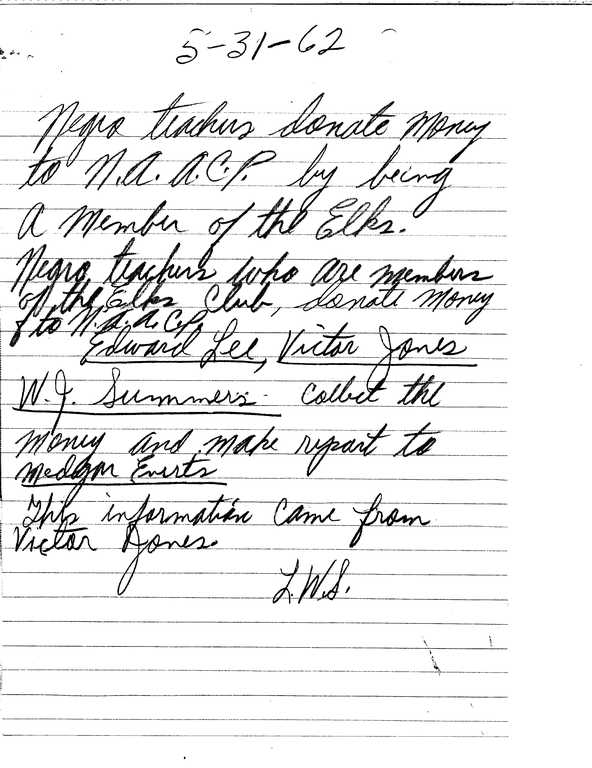 5-31-62
Negro teachers donate money
to N.A.A.C.P. by being
a member of the Elks.
Negro teachers who are members
of the Elks Club, donate money
to N.A.A.C.P.
Edward Lee, Victor Jones
W.J. Summers - collect the
money and make report to
Medgar Everts
This information came from
Victor Jones.
L.W.S.